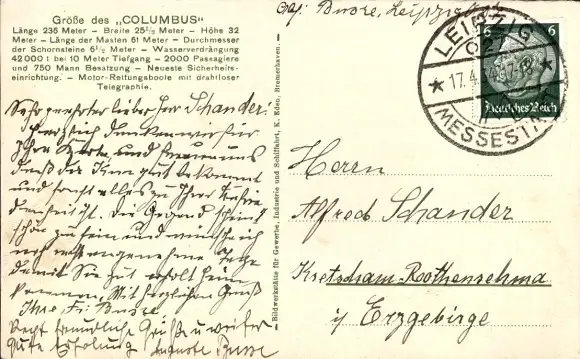 Größe des „COLUMBUS"
Länge 235 Meter - Breite 25½ Meter - Höhe 32
Meter - Länge der Masten 61 Meter - Durchmesser
der Schornsteine 6½ Meter - Wasserverdrängung
42000 t bei 10 Meter Tiefgang - 2000 Passagiere
und 750 Mann Besatzung - Neueste Sicherheits-
einrichtung. - Motor-Rettungsboote mit drahtloser
Telegraphie.
Sehr geehrter lieber Herr Schander.
Herzlich danken wir für
Ihre Karte und freuen uns
daß der Ihnen gut bekommt
und sonst alles zu Ihrer Zufrie
denheit ist. Die Gegend scheint
schön zu sein und wünsche ich
noch angenehme Tage
damit Sie gut erholt heim
kommen. Mit herzlichem Gruß
Ihre Fr. Busse
Recht freundliche Grüße u. weiter
gute Erholung Auguste Busse
Bildwerkstätte für Gewerbe, Industrie und Schiffahrt, K. Eden, Bremerhaven.
Abs. Busse, Leipzig
LEIPZIG
17.4.
MESSESTADT
6 6
Deutsches Reich
Herrn
Alfred Schander
Kretscham-Rothensehma
i/ Erzgebirge